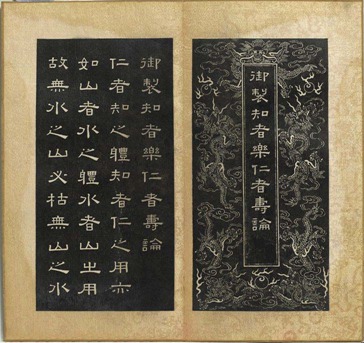 御製知者樂仁者壽論
御製知者樂仁者壽論
仁者知之體知者仁之用亦
如山者水之體水者山之用
故無水之山必枯無山之水